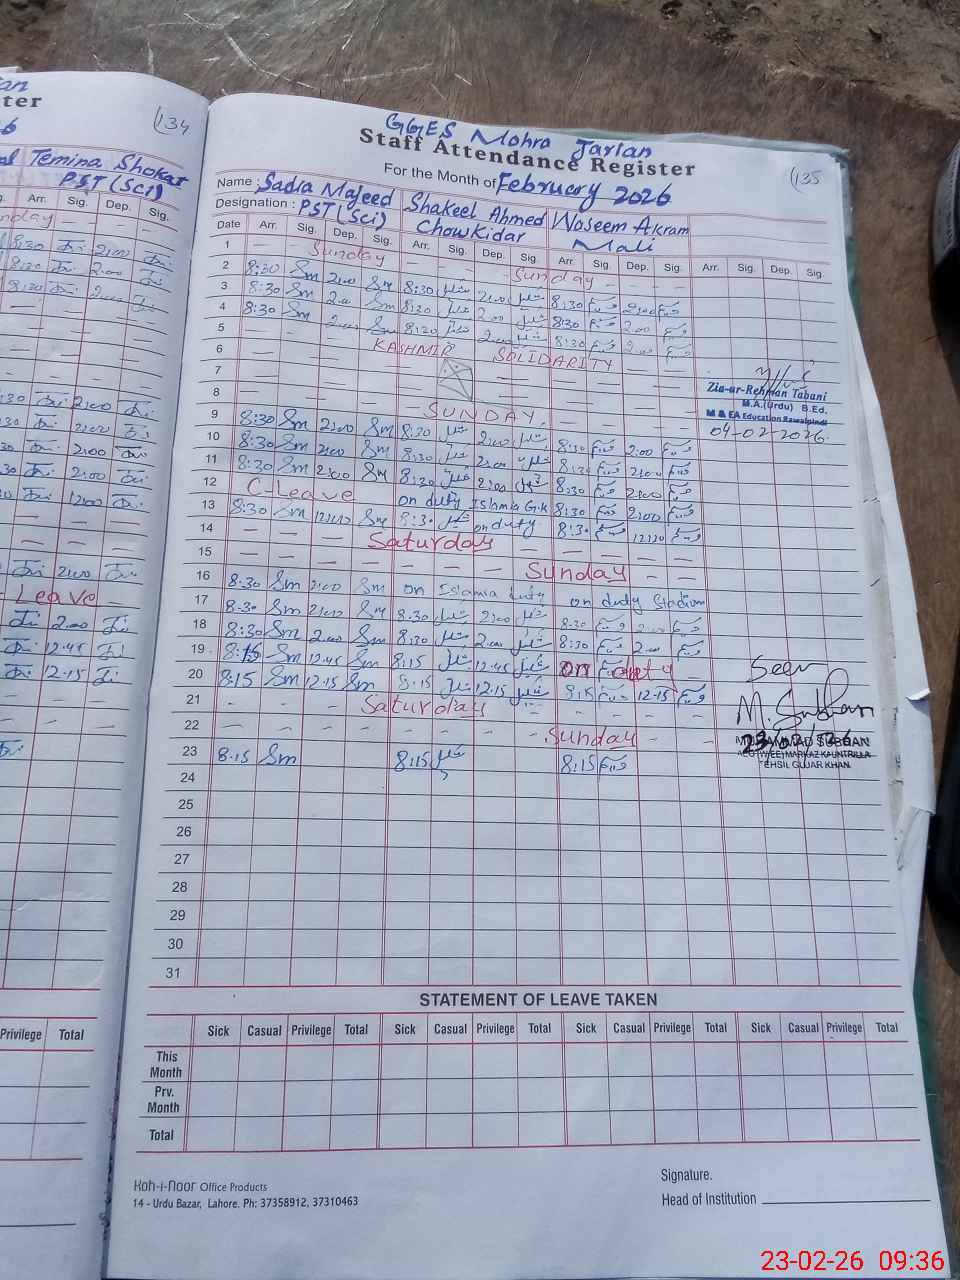 ter
134
Temina Shokat
PST(Sci)
Arr. Sig. Dep. Sig.
8:30 2:00
8:30 2:00
8:30 2:00
2:00
2:00
2:00
2:00
12:00
2:00
Leave
2:00
12.45
12.15
Privilege Total
GGES Mohra Jarian
Staff Attendance Register
135
For the Month of February 2026
Name: Sadia Majeed Shakeel Ahmed Waseem Akram
Designation: PST(Sci) Chowkidar Mali
Date Arr. Sig. Dep. Sig. Arr. Sig. Dep. Sig. Arr. Sig. Dep. Sig. Arr. Sig. Dep. Sig.
1 Sunday Sunday
2 8:30 Sm 2:00 Sm 8:30 2:00 8:30 2:00
3 8:30 Sm 2:00 Sm 8:30 2:00 8:30 2:00
4 8:30 Sm 2:00 Sm 8:30 2:00 8:30 2:00
5 KASHMIR SOLIDARITY
6
7
8 SUNDAY
9 8:30 Sm 2:00 Sm 8:30 2:00 8:30 2:00
10 8:30 Sm 2:00 Sm 8:30 2:00 8:30 2:00
11 8:30 Sm 2:00 Sm 8:30 2:00 8:30 2:00
12 C-Leave on duty Islamia G.K 8:30 2:00
13 8:30 Sm 12:00 Sm 8:30 on duty 8:30
14 Saturday
15 Sunday
16 8:30 Sm 2:00 Sm on Islamia duty on duty Stadium
17 8:30 Sm 2:00 Sm 8:30 2:00 8:30 2:00
18 8:30 Sm 2:00 Sm 8:30 2:00 8:30 2:00
19 8:15 Sm 12.45 Sm 8:15 12.45 on duty
20 8:15 Sm 12.15 Sm 8:15 12.15 8:15 12.15
21 Saturday
22 Sunday
23 8:15 Sm 8:15 8:15
24
25
26
27
28
29
30
31
Zia-ur-Rehman Tabani
M.A.(Urdu) B.Ed.
M & EA Education Rawalpindi
04-02-2026.
Seen
M. Subhan
MUHAMMAD SUBHAN
AEO (W-EE) MARKAZ KAUNTRILLA
TEHSIL GUJAR KHAN.
STATEMENT OF LEAVE TAKEN
Sick Casual Privilege Total Sick Casual Privilege Total Sick Casual Privilege Total Sick Casual Privilege Total
This Month
Prv. Month
Total
Koh-i-noor Office Products
14 - Urdu Bazar, Lahore. Ph: 37358912, 37310463
Signature.
Head of Institution
23-02-26 09:36